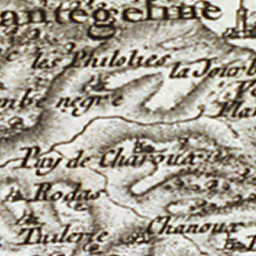 antegenue
les Philolies
la Jourb
mbe negre
Pla
Puy de Charoux
Rodas
Tuilerre
Chanoux